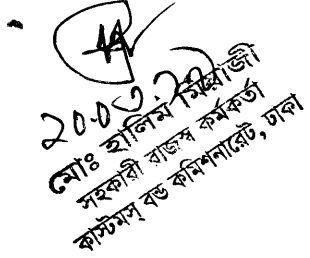 ২০.০৩.২১
মোঃ হালিম মিরাজী
সহকারী রাজস্ব কর্মকর্তা
কাস্টমস্ বন্ড কমিশনারেট, ঢাকা